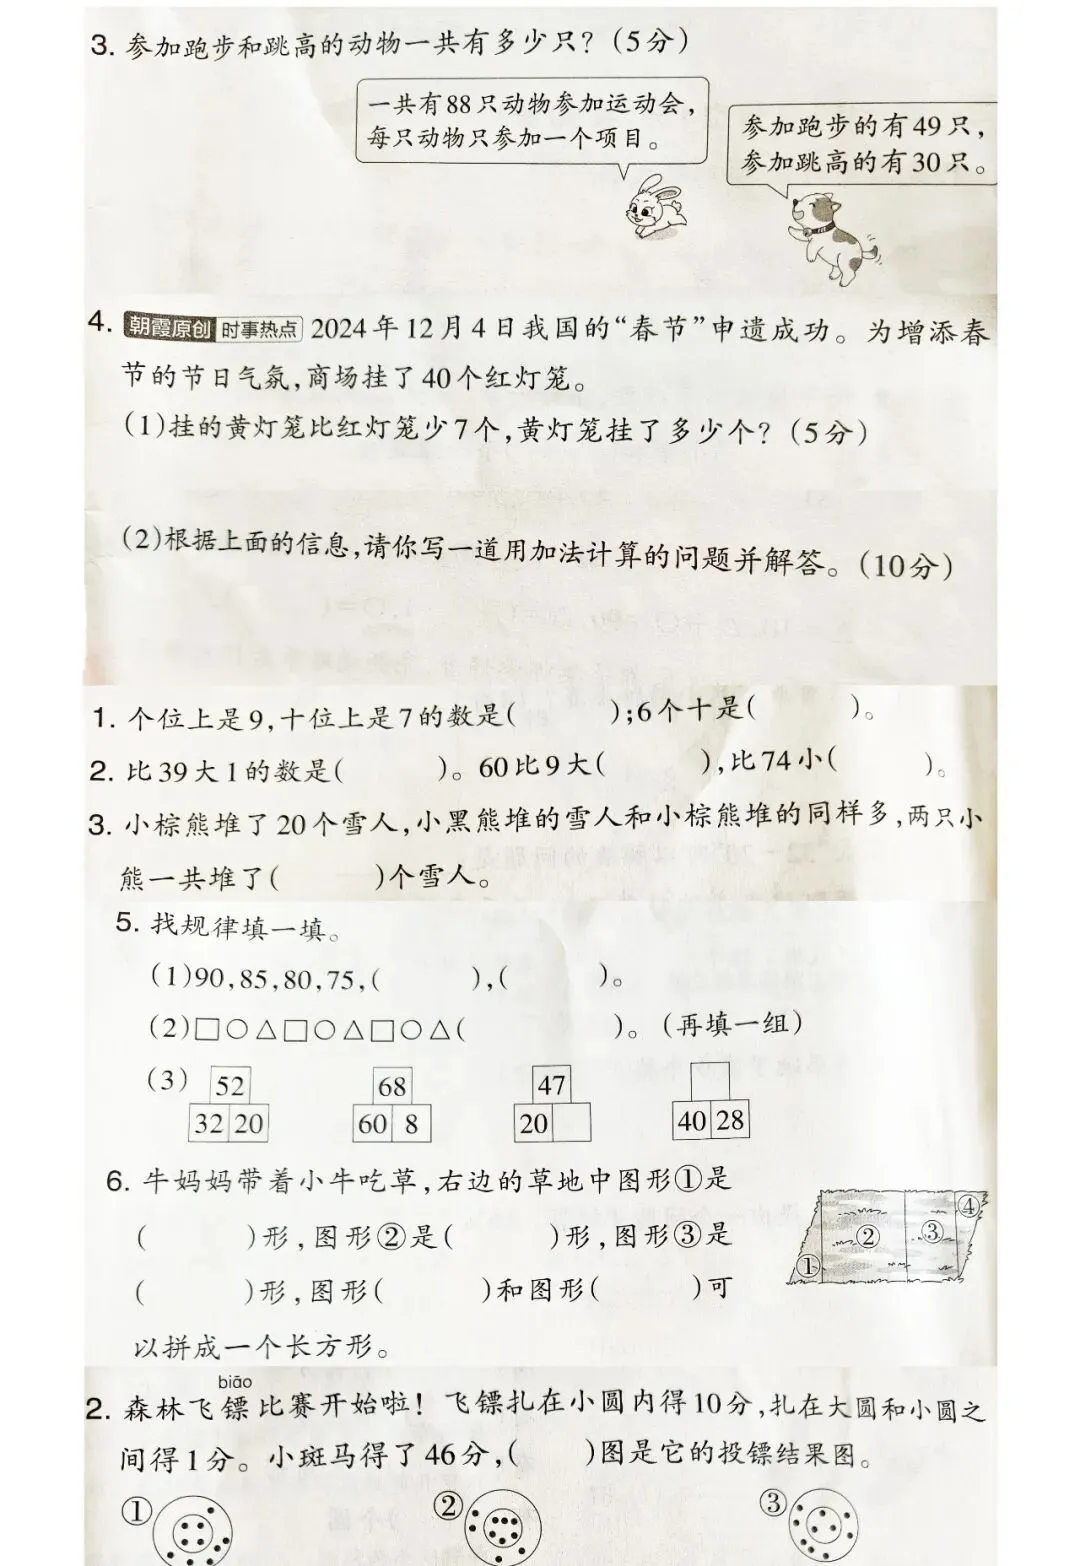 3. 参加跑步和跳高的动物一共有多少只？（5分）
一共有88只动物参加运动会，
每只动物只参加一个项目。
参加跑步的有49只，
参加跳高的有30只。
4. 朝霞原创 时事热点 2024年12月4日我国的“春节”申遗成功。为增添春
节的节日气氛，商场挂了40个红灯笼。
(1)挂的黄灯笼比红灯笼少7个，黄灯笼挂了多少个？（5分）
(2)根据上面的信息，请你写一道用加法计算的问题并解答。（10分）
1. 个位上是9，十位上是7的数是(　　)；6个十是(　　)。
2. 比39大1的数是(　　)。60比9大(　　)，比74小(　　)。
3. 小棕熊堆了20个雪人，小黑熊堆的雪人和小棕熊堆的同样多，两只小
熊一共堆了(　　)个雪人。
5. 找规律填一填。
(1)90，85，80，75，(　　)，(　　)。
(2)□○△□○△□○△(　　)。（再填一组）
(3) 52 68 47
32 20 60 8 20 40 28
6. 牛妈妈带着小牛吃草，右边的草地中图形①是
(　　)形，图形②是(　　)形，图形③是
(　　)形，图形(　　)和图形(　　)可
以拼成一个长方形。
① ② ③ ④
biāo
2. 森林飞镖比赛开始啦！飞镖扎在小圆内得10分，扎在大圆和小圆之
间得1分。小斑马得了46分，(　　)图是它的投镖结果图。
① ② ③